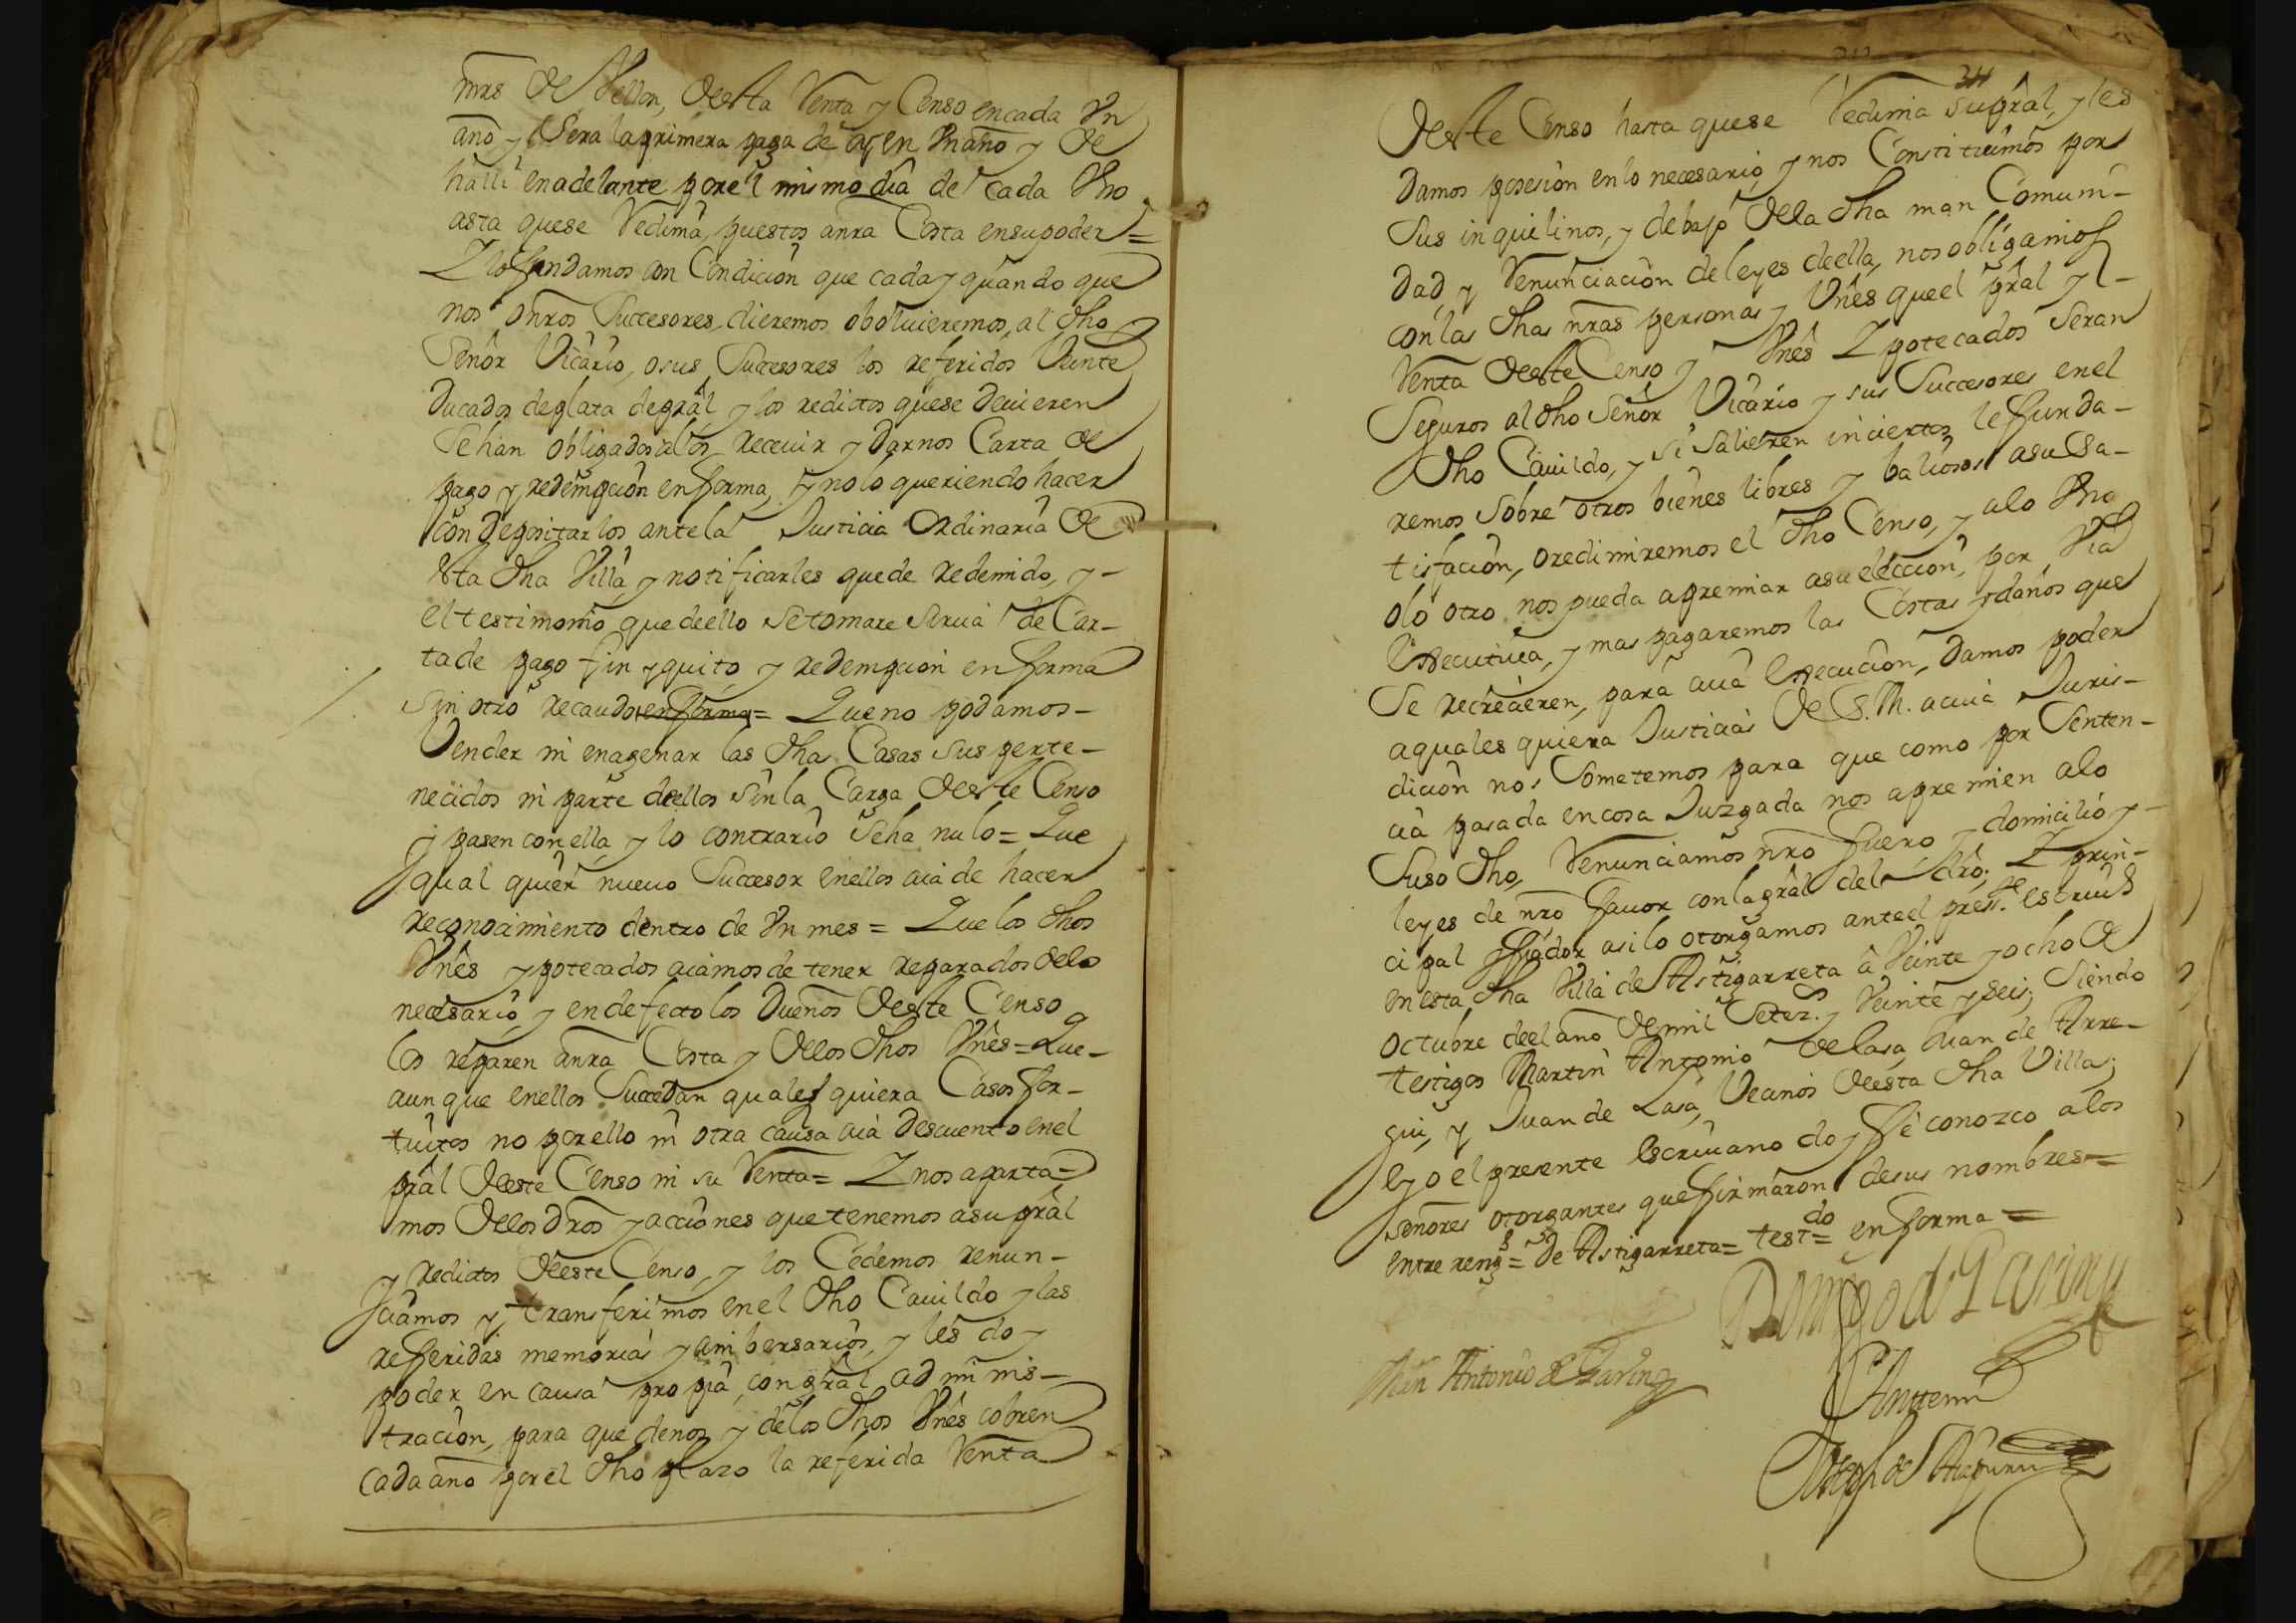 mrs de Vellon, desta Renta y Censo encada Un
año, y Sera la primera paga de oy en Un año y de
halli en adelante por el mismo dia de cada Uno
asta que se Redima, puestos a nra Costa en su poder =
Y lo fundamos con Condicion que cada y quando que
nos o nros Successores, dieremos o bolvieremos, al dho
Señor Vicario, o sus Successores los referidos Veinte
Ducados de plata de pral y los redictos que se devieren
Sehan obligados a los Recevir y Darnos Carta de
pago y redempcion en forma, y no lo queriendo hacer
con Depositarlos ante la Justicia Ordinaria de
esta dha Villa, y notificarles quede Redemido, y -
el testimonio que de ello se tomare sirva de Car-
ta de pago fin y quito y redempcion en forma
sin otro Recaudo en forma = Que no podamos -
Vender ni enagenar las dhas Casas sus perte-
necidos ni parte de ellos sin la Carga deeste Censo
y pasen con ella, y lo contrario seha nulo = Que
qual quier nuevo Successor en ellos aia de hacer
reconocimiento dentro de Un mes = Que los dhos
Vnes ypotecados aiamos de tener reparados delo
necesario, y en defecto los Dueños deeste Censo
los reparen a nra Costa y delos dhos Vnes = Que -
aun que en ellos Succedan quales quiera Casos for-
tuitos no por ello ni otra causa aia Descuento en el
pral deeste Censo ni su Renta = Y nos aparta=
mos delos dros y acciones que tenemos a su pral
y Redictos deeste Censo, y los Cedemos renun-
ciamos y transferimos en el dho Cavildo y las
referidas memorias y anibersarios, y les doy
poder en causa propia, con gral adminis-
tracion, para que de nos y de los dhos Vnes cobren
cada año por el dho plazo la referida Renta
311
Deeste Censo hasta que se Redima su pral, y les
Damos posesion en lo necesario, y nos Constituimos por
sus inquilinos, y debajo dela dha man Comuni-
dad, y Renunciacion de leyes de ella, nos obligamos
con las dhas nras personas y Vnes que el pral y l-
Renta deeste Censo y Vnes Ypotecados Seran
Seguros al dho Señor Vicario y sus Successores en el
dho Cavildo, y si salieren inciertos le funda-
remos sobre otros bienes libres y baliosos a su Sa-
tisfacion, o redimiremos el dho Censo, y a lo Uno
o lo otro nos pueda apremiar a su eleccion, por Via
Executiva, y mas pagaremos las Costas y daños que
se recrecieren, para cuia Execucion, Damos poder
a quales quiera Justicias de S. M. a cuia Juris-
dicion nos Sometemos para que como por Senten-
cia pasada en cosa Juzgada nos apremien a lo
Suso dho, Renunciamos nro fuero, y domicilio y -
leyes de nro favor con la gral del dro; Y prin-
cipal y fiador asi lo otorgamos ante el press.te escrivo
en esta dha Villa de Astigarreta a Veinte y ocho de
Octubre del año de mil Setez.s y Veinte y seis; Siendo
testigos Martin Antonio de Lasa, Juan de Arre-
gui, y Juan de Lasa, Vecinos deesta dha Villa;
e yo el presente escrivano doy fe conozco a los
señores otorgantes que firmaron de sus nombres =
entre rengs = de Astigarreta = testdo = en forma =
Domingo de Garin
Min Antonio de Garin
Antemi
Joseph de